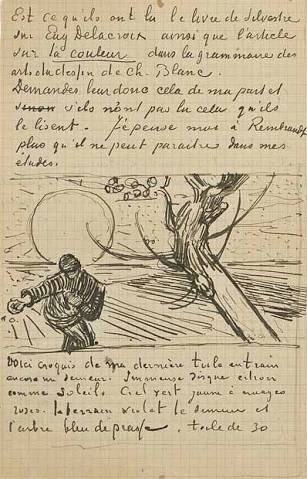 Est ce qu'ils ont lu le livre de Silvestre
sur Eug Delacroix ainsi que l'article
sur la couleur dans la grammaire des
arts du dessin de Ch. Blanc.
Demandes leur donc cela de ma part et
sinon s'ils n'ont pas lu cela qu'ils
le lisent. J'épense moi à Rembrandt
plus qu'il ne peut paraitre dans mes
etudes.
Voici croquis de ma dernière toile en train
encore un semeur. Immense disque citron
comme soleil. Ciel vert jaune à nuages
roses. le terrain violet le semeur et
l'arbre bleu de prusse. toile de 30